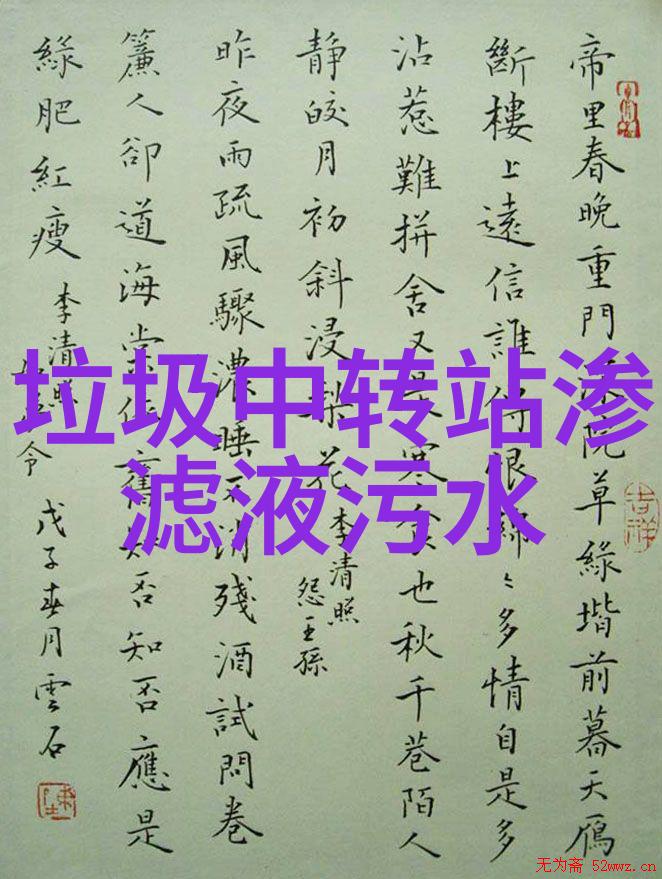 帝里春晚重門深院草緑堦前暮天鴈
斷樓上遠信誰恨綿〻多情自是多
沾惹難拼舍又是寒食也秋千巷陌人
静皎月初斜浸梨花
李清照
怨王孫
昨夜雨疏風驟濃睡不消殘酒試問卷
簾人卻道海棠依舊知否知否應是
緑肥紅瘦
李清照
令
戊子春月雲石
垃圾中转站渗
滤液污水
吉祥
无为斋 52wwz.cn